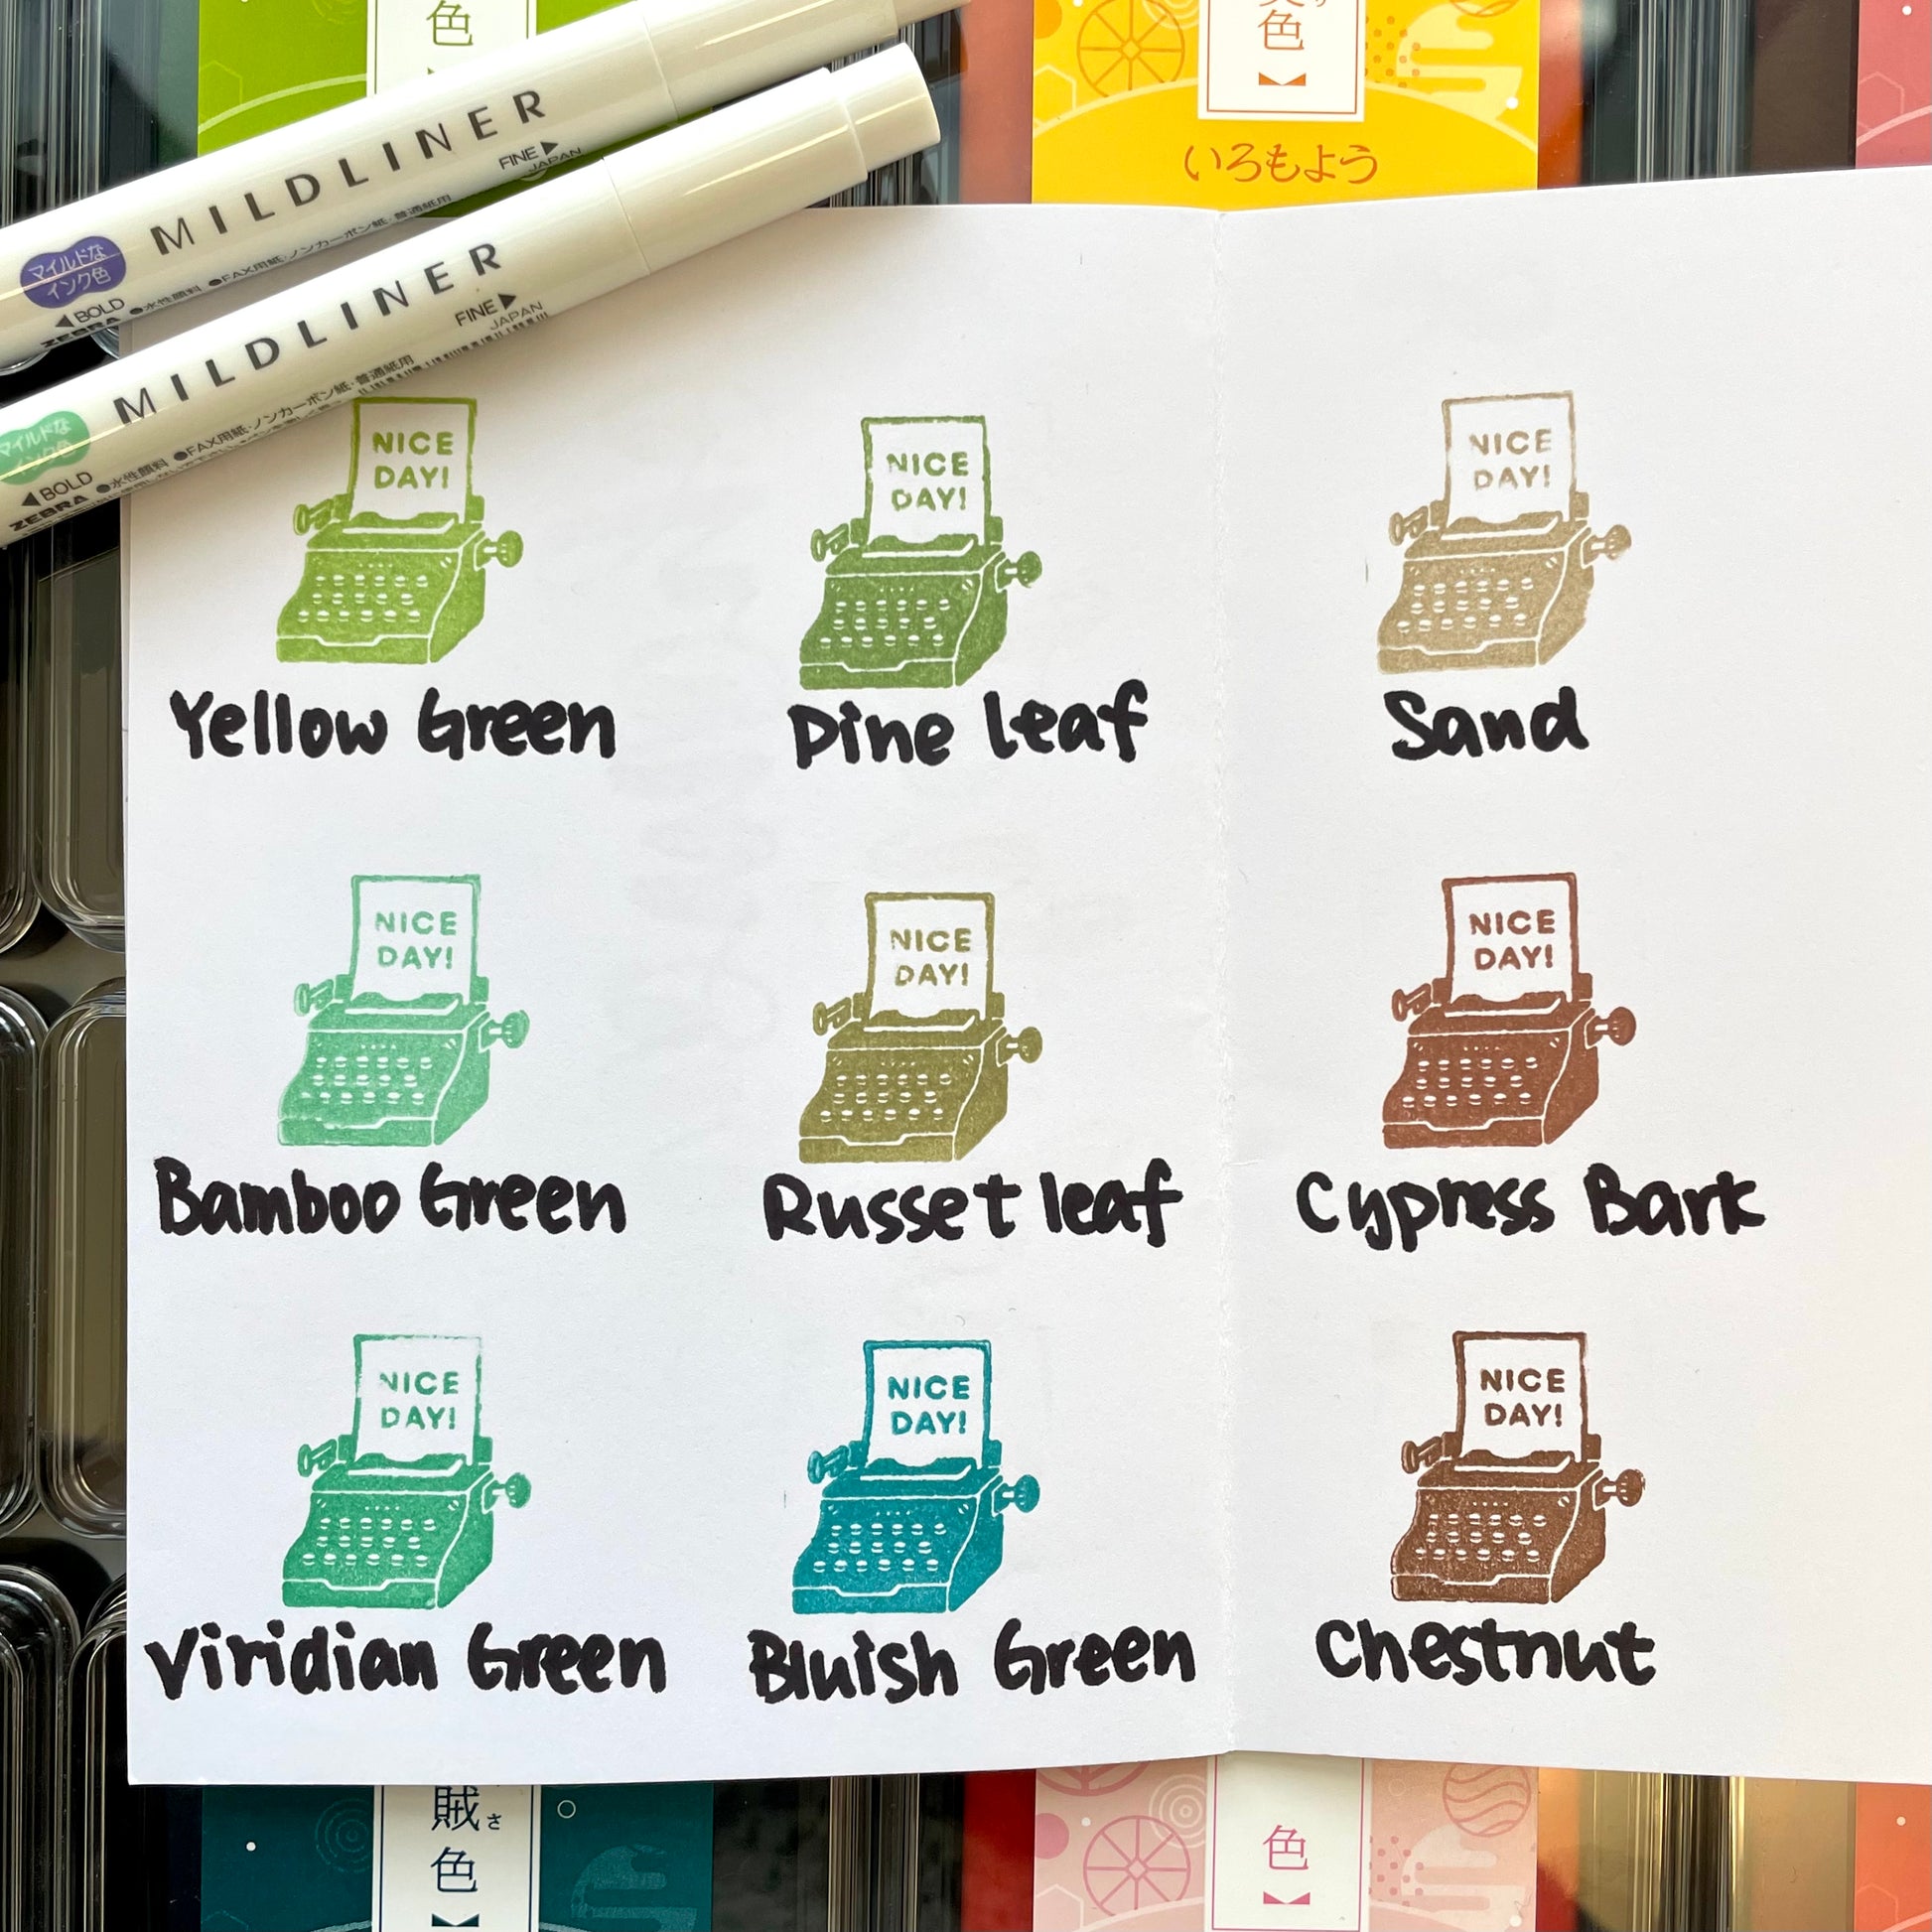 色
色
いろもよう
MILDLINER
FINE▶
JAPAN
マイルドな
インク色
◀BOLD
ZEBRA
●水性顔料 ●FAX用紙・ノンカーボン紙・普通紙用
MILDLINER
FINE▶
JAPAN
マイルドな
インク色
◀BOLD
ZEBRA
●水性顔料 ●FAX用紙・ノンカーボン紙・普通紙用
NICE
DAY!
NICE
DAY!
NICE
DAY!
Yellow Green
Pine leaf
Sand
NICE
DAY!
NICE
DAY!
NICE
DAY!
Bamboo Green
Russet leaf
Cypress Bark
NICE
DAY!
NICE
DAY!
NICE
DAY!
Viridian Green
Bluish Green
Chestnut
賊さ
色
色